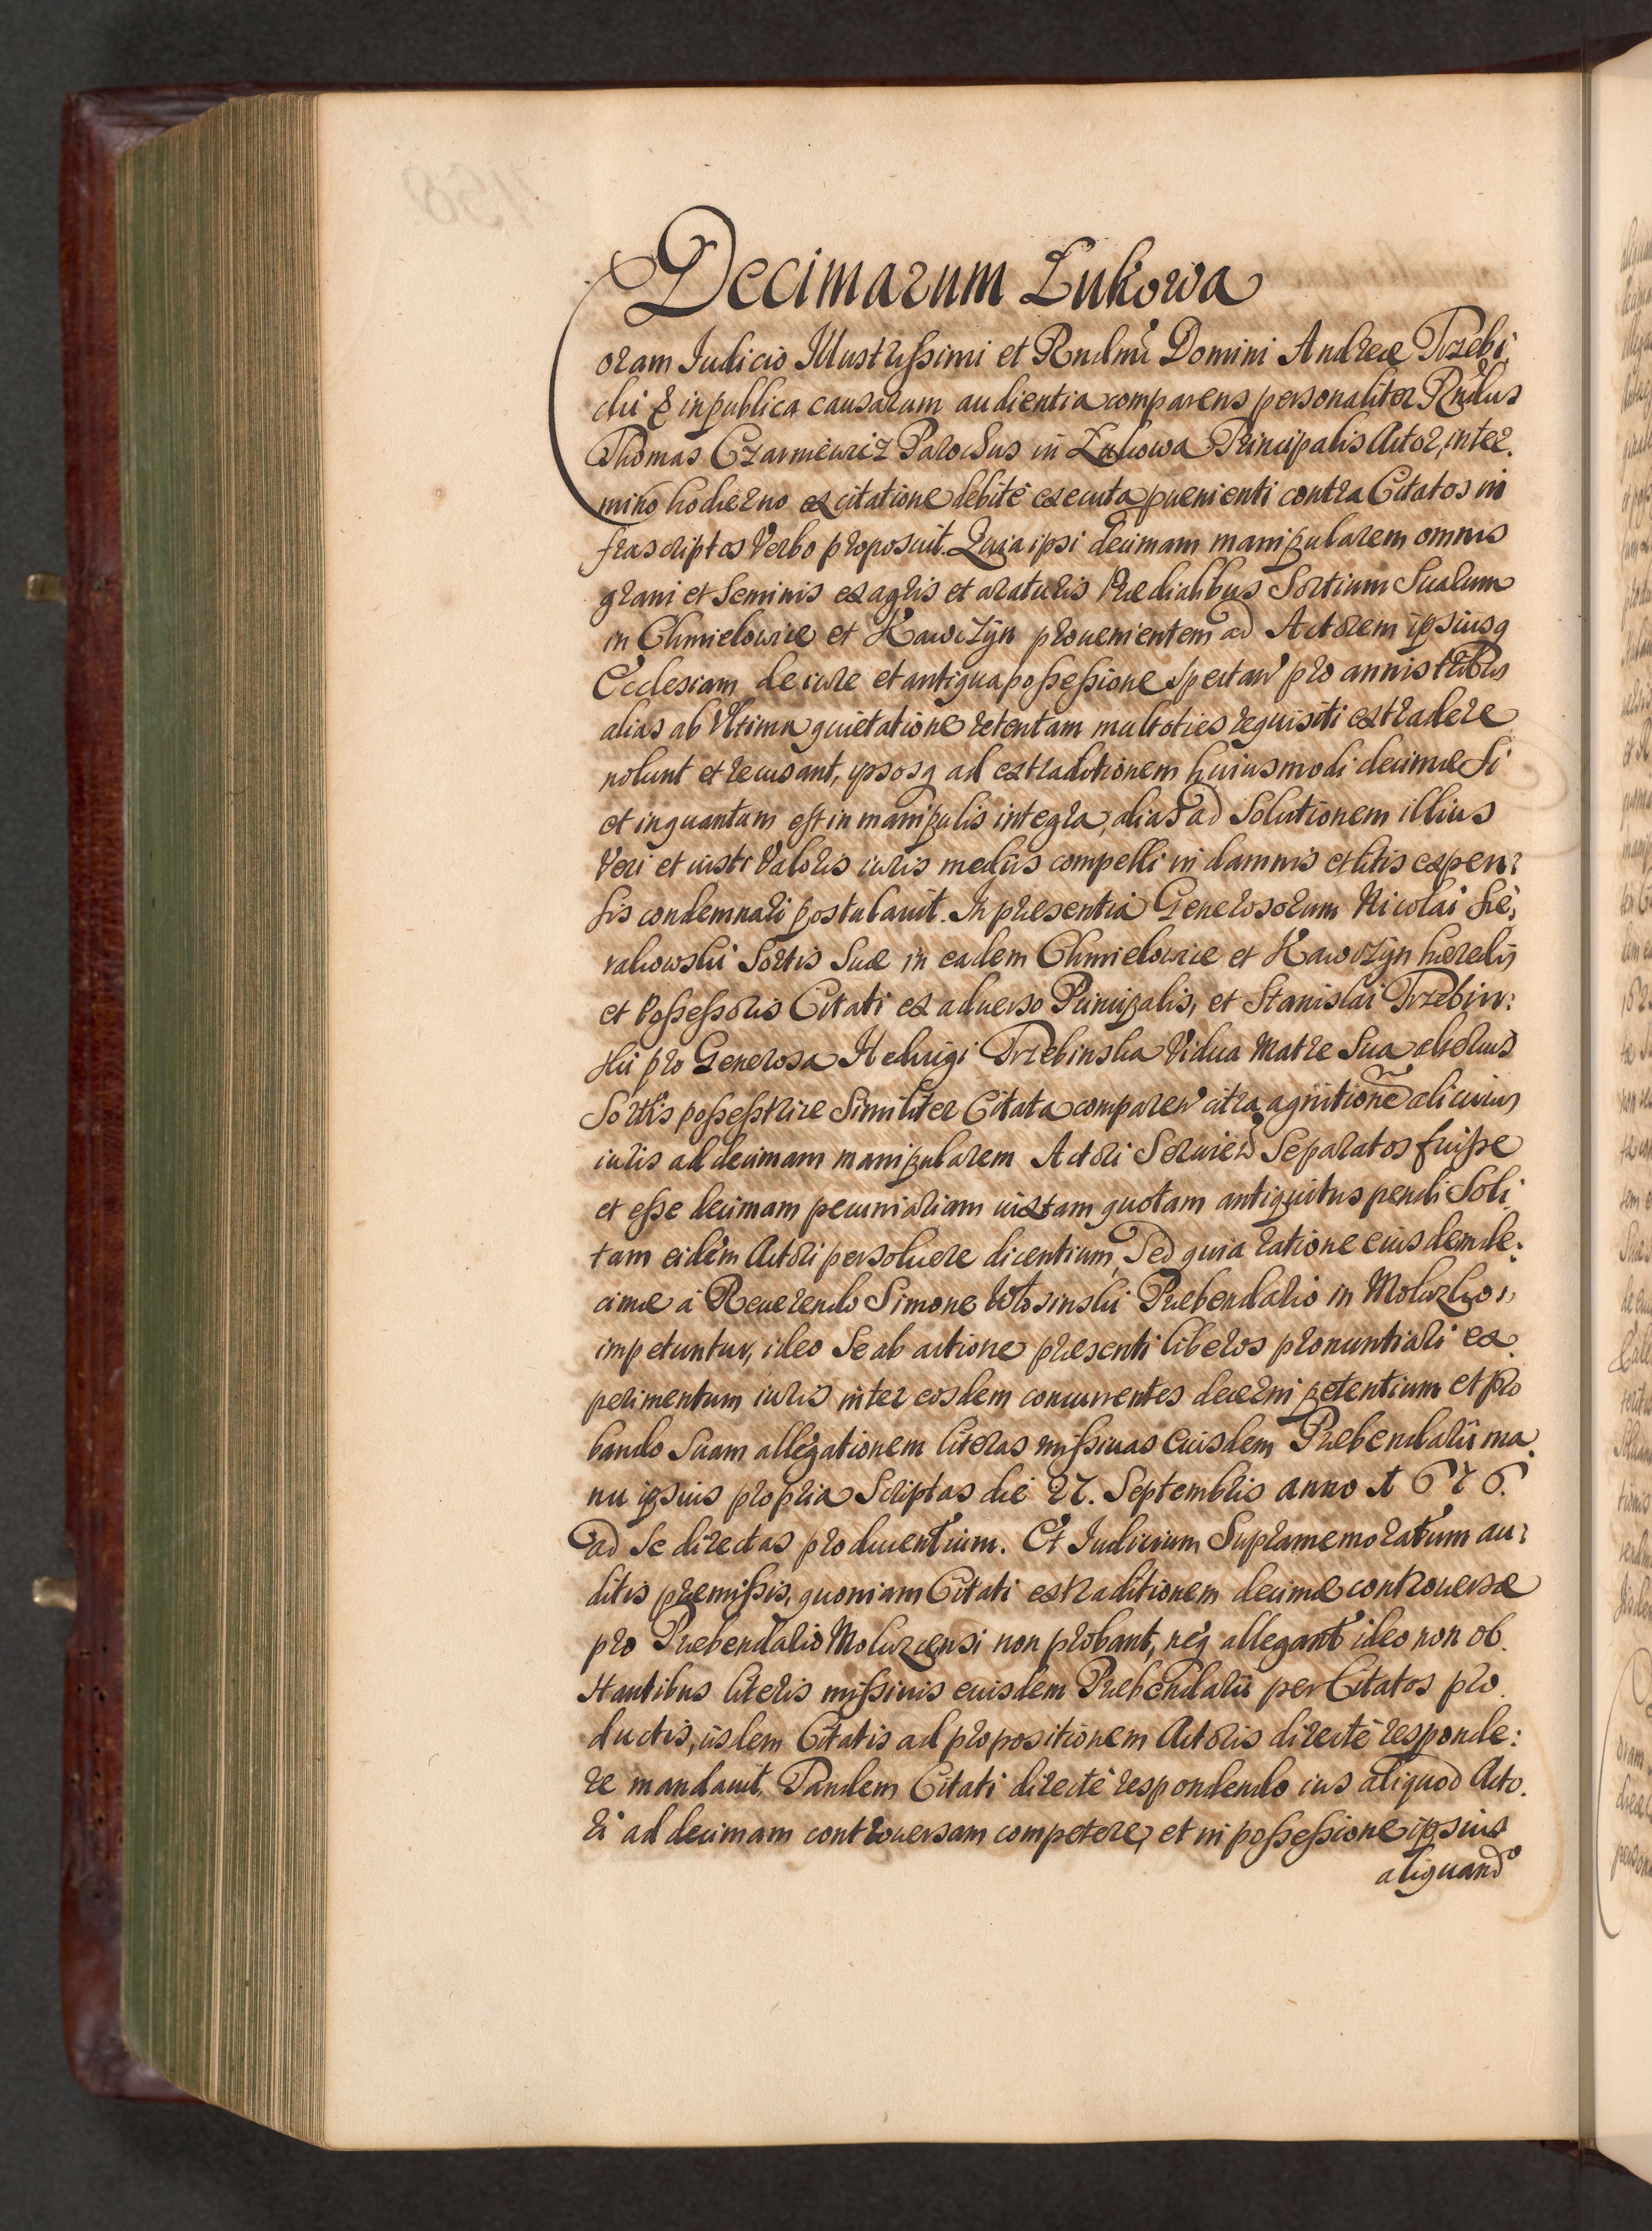 Decimarum Łukowa
Coram Judicio Illustrissimi et Rndmi Domini Andreæ Trzebi,
cki & in publica causarum audientia comparens personaliter Rndus
Thomas Czarniewicz Parochus in Łukowa Principalis Actor, in ter.
mino hodierno ex citatione debitè executa puenienti contra Citatos in
frascriptos Verbo proposuit. Quia ipsi decimam manipularem omnis
grani et Seminis ex agris et araturis Prædialibus Sortium Suarum
in Chmielowice et Kawczyn prouenientem ad Actorem ipsiusq
Ecclesiam de iure et antiqua possessione spectan pro annis tribus
alias ab Vltima quietatione retentam multoties requisiti extradere
nolunt et recusant, ipsosq ad extraditionem huiusmodi decimæ Si
et inquantum est in manipulis integra, alias ad Solutionem illius
Veri et iusti Valoris iuris medijs compelli in damnis et litis expen:
sis condemnari postulauit. In præsentia Generosorum Nicolai Sie,
rakowski Sortis Suæ in eadem Chmielowice et Kawczyn hæredis
et Possessoris Citati ex aduerso Principalis, et Stanislai Trzebin:
ski pro Generosa Hedwigi Trzebinska Vidua Matre Sua alterius
Sortis possessrice Similiter Citata comparen citra agnitione alicuius
iuris ad decimam manipularem Actori Seruien Se paratos fuisse
et esse decimam pecuniariam iuxtam quotam antiquitus pendi Soli,
tam eidem Actori persoluere dicentium, Sed quia ratione eiusdem de:
cimæ à Reuerendo Simone Włosinski Præbendario in
impetuntur, ideo Se ab actione præsenti liberos pronuntiari ex
perimentum iuris inter eosdem concurrentes decerni petentium et pro
bando Suam allegationem literas missiuas Eiusdem Præbendarii ma
nu ipsius propria Scriptas die 27. Septembris anno 1676.
ad Se directas producentium. Et Judicium Supramemoratum au:
ditis præmissis, quoniam Citati extraditionem decimæ controuersæ
pro Præbendario non probant, neq allegant ideo non ob.
stantibus literis missiuis eiusdem Præbendarii per Citatos pro
ductis, iisdem Citatis ad propositionem Actoris directè responde:
re mandauit. Tandem Citati directè respondendo ius aliquod Acto.
ri ad decimam controuersam competere, et in possessione ipsius
aliquando